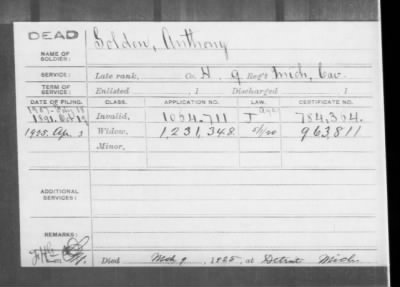 DEAD
NAME OF SOLDIER: Golden, Anthony
SERVICE: Late rank, Co. H, 9 Reg't Mich. Cav.
TERM OF SERVICE: Enlisted , 1 Discharged , 1
DATE OF FILING. CLASS. APPLICATION NO. LAW. CERTIFICATE NO.
1891 Invalid, 1064.711 J 784,364
1925, Apr. 3 Widow, 1,231,348 5/1/20 963,811
Minor,
ADDITIONAL SERVICES:
REMARKS:
Died Mch 9, 1925, at Detroit Mich.